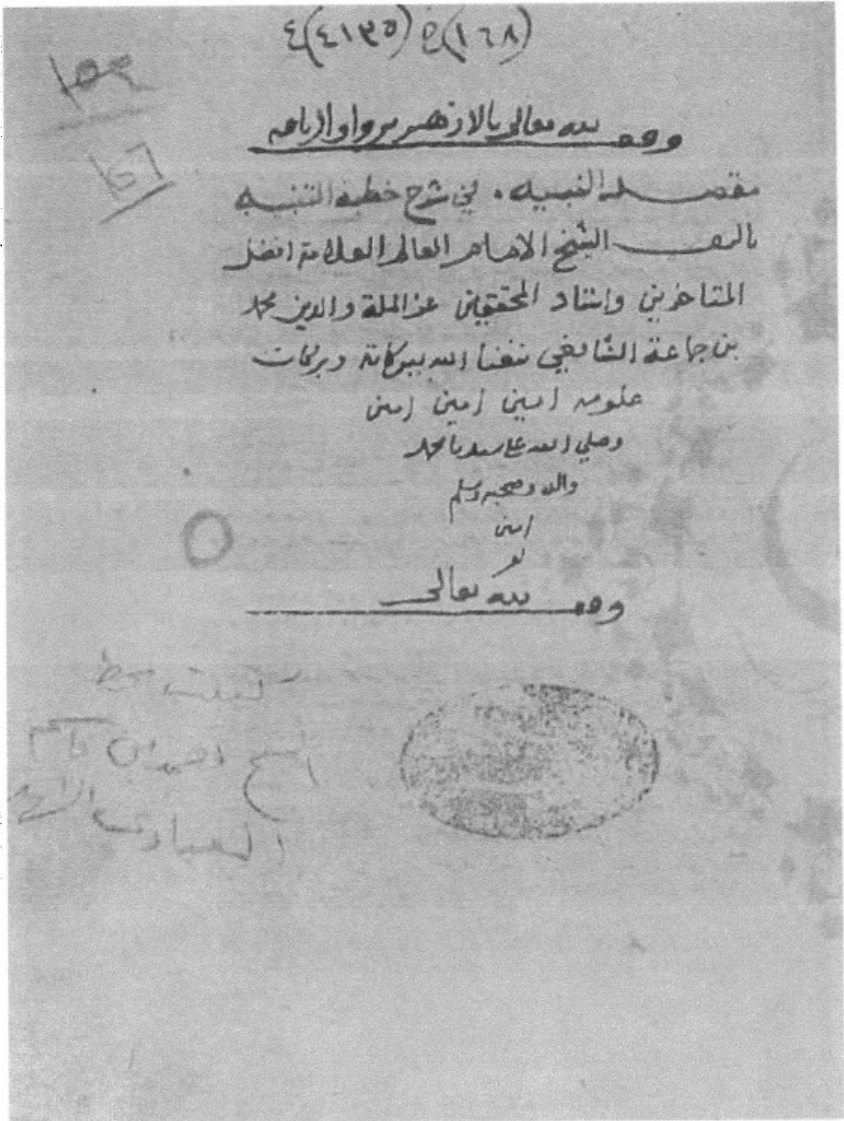 (١٦٨) ع (٤١٣٥) ٤
وقف لله تعالى بالازهر برواق
مقصد النبيه في شرح خطبة التنبيه
تاليف الشيخ الامام العالم العلامة افضل
المتاخرين واستاد المحققين عز الملة والدين محمد
بن جماعة الشافعي نفعنا الله ببركاته وبركات
علومه امين امين امين
وصلي الله على سيدنا محمد
واله وصحبه وسلم
امين
وقف لله تعالى
بخط
الشيخ احمد ابن قاسم
العبادي